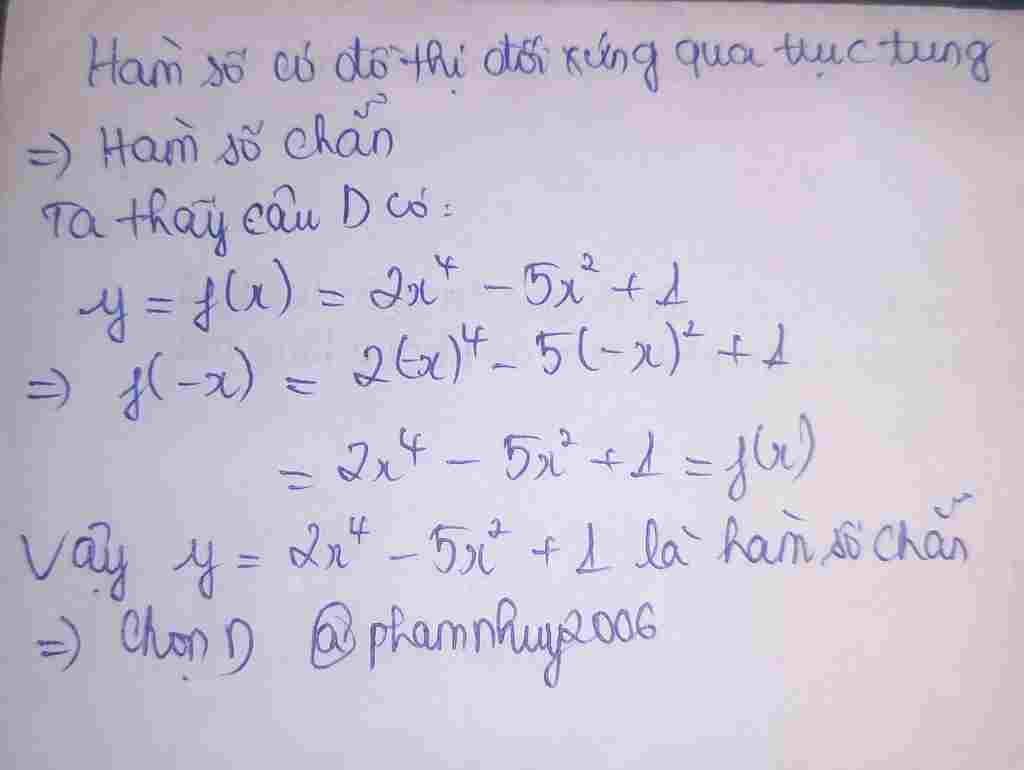 Hàm số có đồ thị đối xứng qua trục tung
=> Hàm số chẵn
Ta thấy câu D có:
y = f(x) = 2x⁴ - 5x² + 1
=> f(-x) = 2(-x)⁴ - 5(-x)² + 1
= 2x⁴ - 5x² + 1 = f(x)
Vậy y = 2x⁴ - 5x² + 1 là hàm số chẵn
=> Chọn D @phamnhuy2006